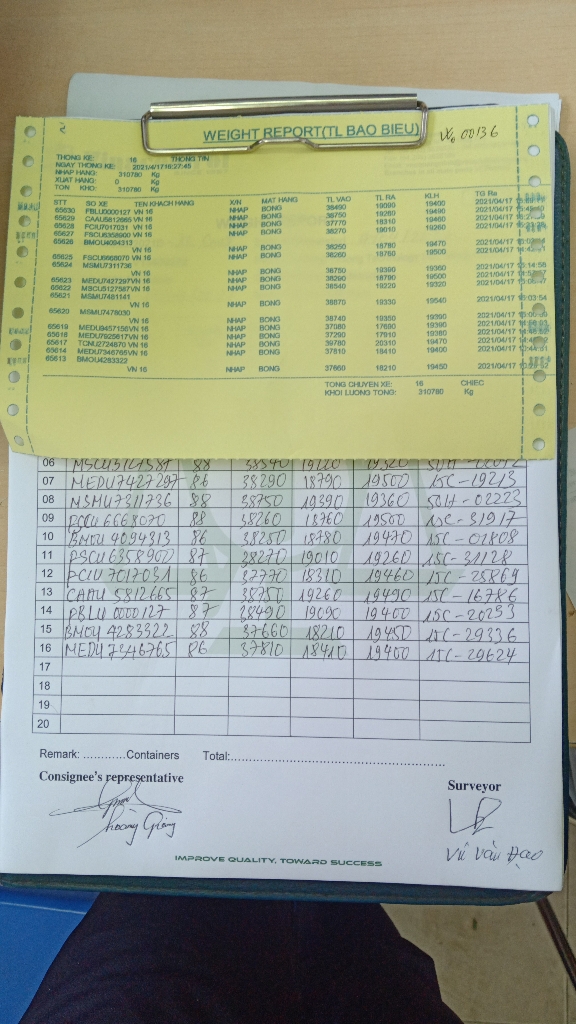 WEIGHT REPORT(TL BAO BIEU)
THONG KE: 16 THONG TIN
NGAY THONG KE: 2021/4/17 16:27:45
NHAP HANG: 310780 Kg
XUAT HANG: 0 Kg
TON KHO: 310780 Kg
STT SO XE TEN KHACH HANG X/N MAT HANG TL VAO TL RA KLH TG Ra
65630 FBLU0000127 VN 16 NHAP BONG 38490 19090 19400 2021/04/17
65629 CAAU5812665 VN 16 NHAP BONG 38750 19260 19490 2021/04/17
65628 FCIU7017031 VN 16 NHAP BONG 37770 18310 19460 2021/04/17
65627 FSCU6358900 VN 16 NHAP BONG 38270 19010 19260 2021/04/17
65626 BMOU4094313
VN 16 NHAP BONG 38250 18780 19470 2021/04/17
65625 FSCU6668070 VN 16 NHAP BONG 38260 18760 19500 2021/04/17
65624 MSMU7311736
VN 16 NHAP BONG 38750 19390 19360 2021/04/17
65623 MEDU7427297 VN 16 NHAP BONG 38290 18790 19500 2021/04/17
65622 MSCU5127587 VN 16 NHAP BONG 38540 19220 19320 2021/04/17
65621 MSMU7481141
VN 16 NHAP BONG 38870 19330 19540 2021/04/17
65620 MSMU7478030
VN 16 NHAP BONG 38740 19350 19390 2021/04/17
65619 MEDU9457158 VN 16 NHAP BONG 37090 17690 19390 2021/04/17
65618 MEDU7925617 VN 16 NHAP BONG 37290 17910 19380 2021/04/17
65617 TCNU2724870 VN 16 NHAP BONG 39780 20310 19470 2021/04/17
65614 MEDU7346765 VN 16 NHAP BONG 37810 18410 19400 2021/04/17
65613 BMOU4283322
VN 16 NHAP BONG 37660 18210 19450 2021/04/17
TONG CHUYEN XE: 16 CHIEC
KHOI LUONG TONG: 310780 Kg
06 88 38540 19220 19320
07 MEDU7427297 86 38290 18790 19500 15C-19213
08 MSMU7311736 88 38750 19390 19360 50H-02223
09 FSCU 6668070 88 38260 18760 19500 15C-31917
10 BMOU 4094313 86 38250 18780 19470 15C-01808
11 FSCU 6358900 87 38270 19010 19260 15C-31128
12 FCIU 7017031 86 37770 18310 19460 15C-25869
13 CAAU 5812665 87 38750 19260 19490 15C-16786
14 FBLU 0000127 87 38490 19090 19400 15C-20253
15 BMOU 4283322 88 37660 18210 19450 15C-29336
16 MEDU 7346765 86 37810 18410 19400 15C-29624
17
18
19
20
Remark: ............Containers Total:......................................................
Consignee's representative
Surveyor
Hoang Giang
Vũ Văn Đạo
IMPROVE QUALITY, TOWARD SUCCESS